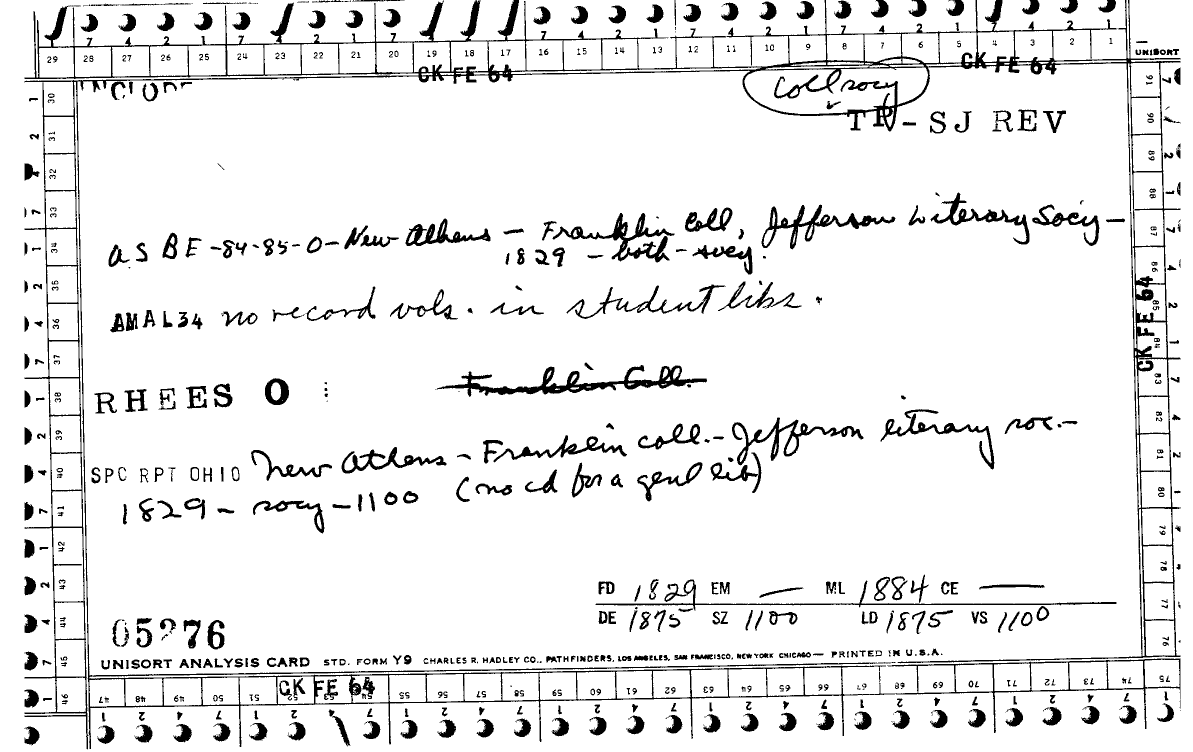 7 4 2 1 7 4 2 1 7 4 2 1 7 4 2 1
29 28 27 26 25 24 23 22 21 20 19 18 17 16 15 14 13 12 11 10 9 8 7 6 5 4 3 2 1 UNISORT
CK FE 64 CK FE 64
INCLODE
Coll socy
TR-SJ REV
A S B E -84-85-0-New Athens - Franklin Coll, Jefferson Literary Socy-
1829 - both - socy.
AMAL34 no record vols. in student libs.
RHEES O
Franklin Coll.
SPC RPT OHIO New Athens - Franklin coll. - Jefferson literary soc.-
1829 - socy - 1100 (no cd for a genl lib)
FD 1829 EM — ML 1884 CE —
DE 1875 SZ 1100 LD 1875 VS 1100
05276
UNISORT ANALYSIS CARD STD. FORM Y9 CHARLES R. HADLEY CO., PATHFINDERS, LOS ANGELES, SAN FRANCISCO, NEW YORK CHICAGO — PRINTED IN U.S.A.
CK FE 64
47 48 49 50 51 52 53 54 55 56 57 58 59 60 61 62 63 64 65 66 67 68 69 70 71 72 73 74 75
1 2 4 7 1 2 4 7 1 2 4 7 1 2 4 7 1 2 4 7 1 2 4 7 1 2 4 7 1
30 31 32 33 34 35 36 37 38 39 40 41 42 43 44 45 46
91 90 89 88 87 86 85 84 83 82 81 80 79 78 77 76
CK FE 64